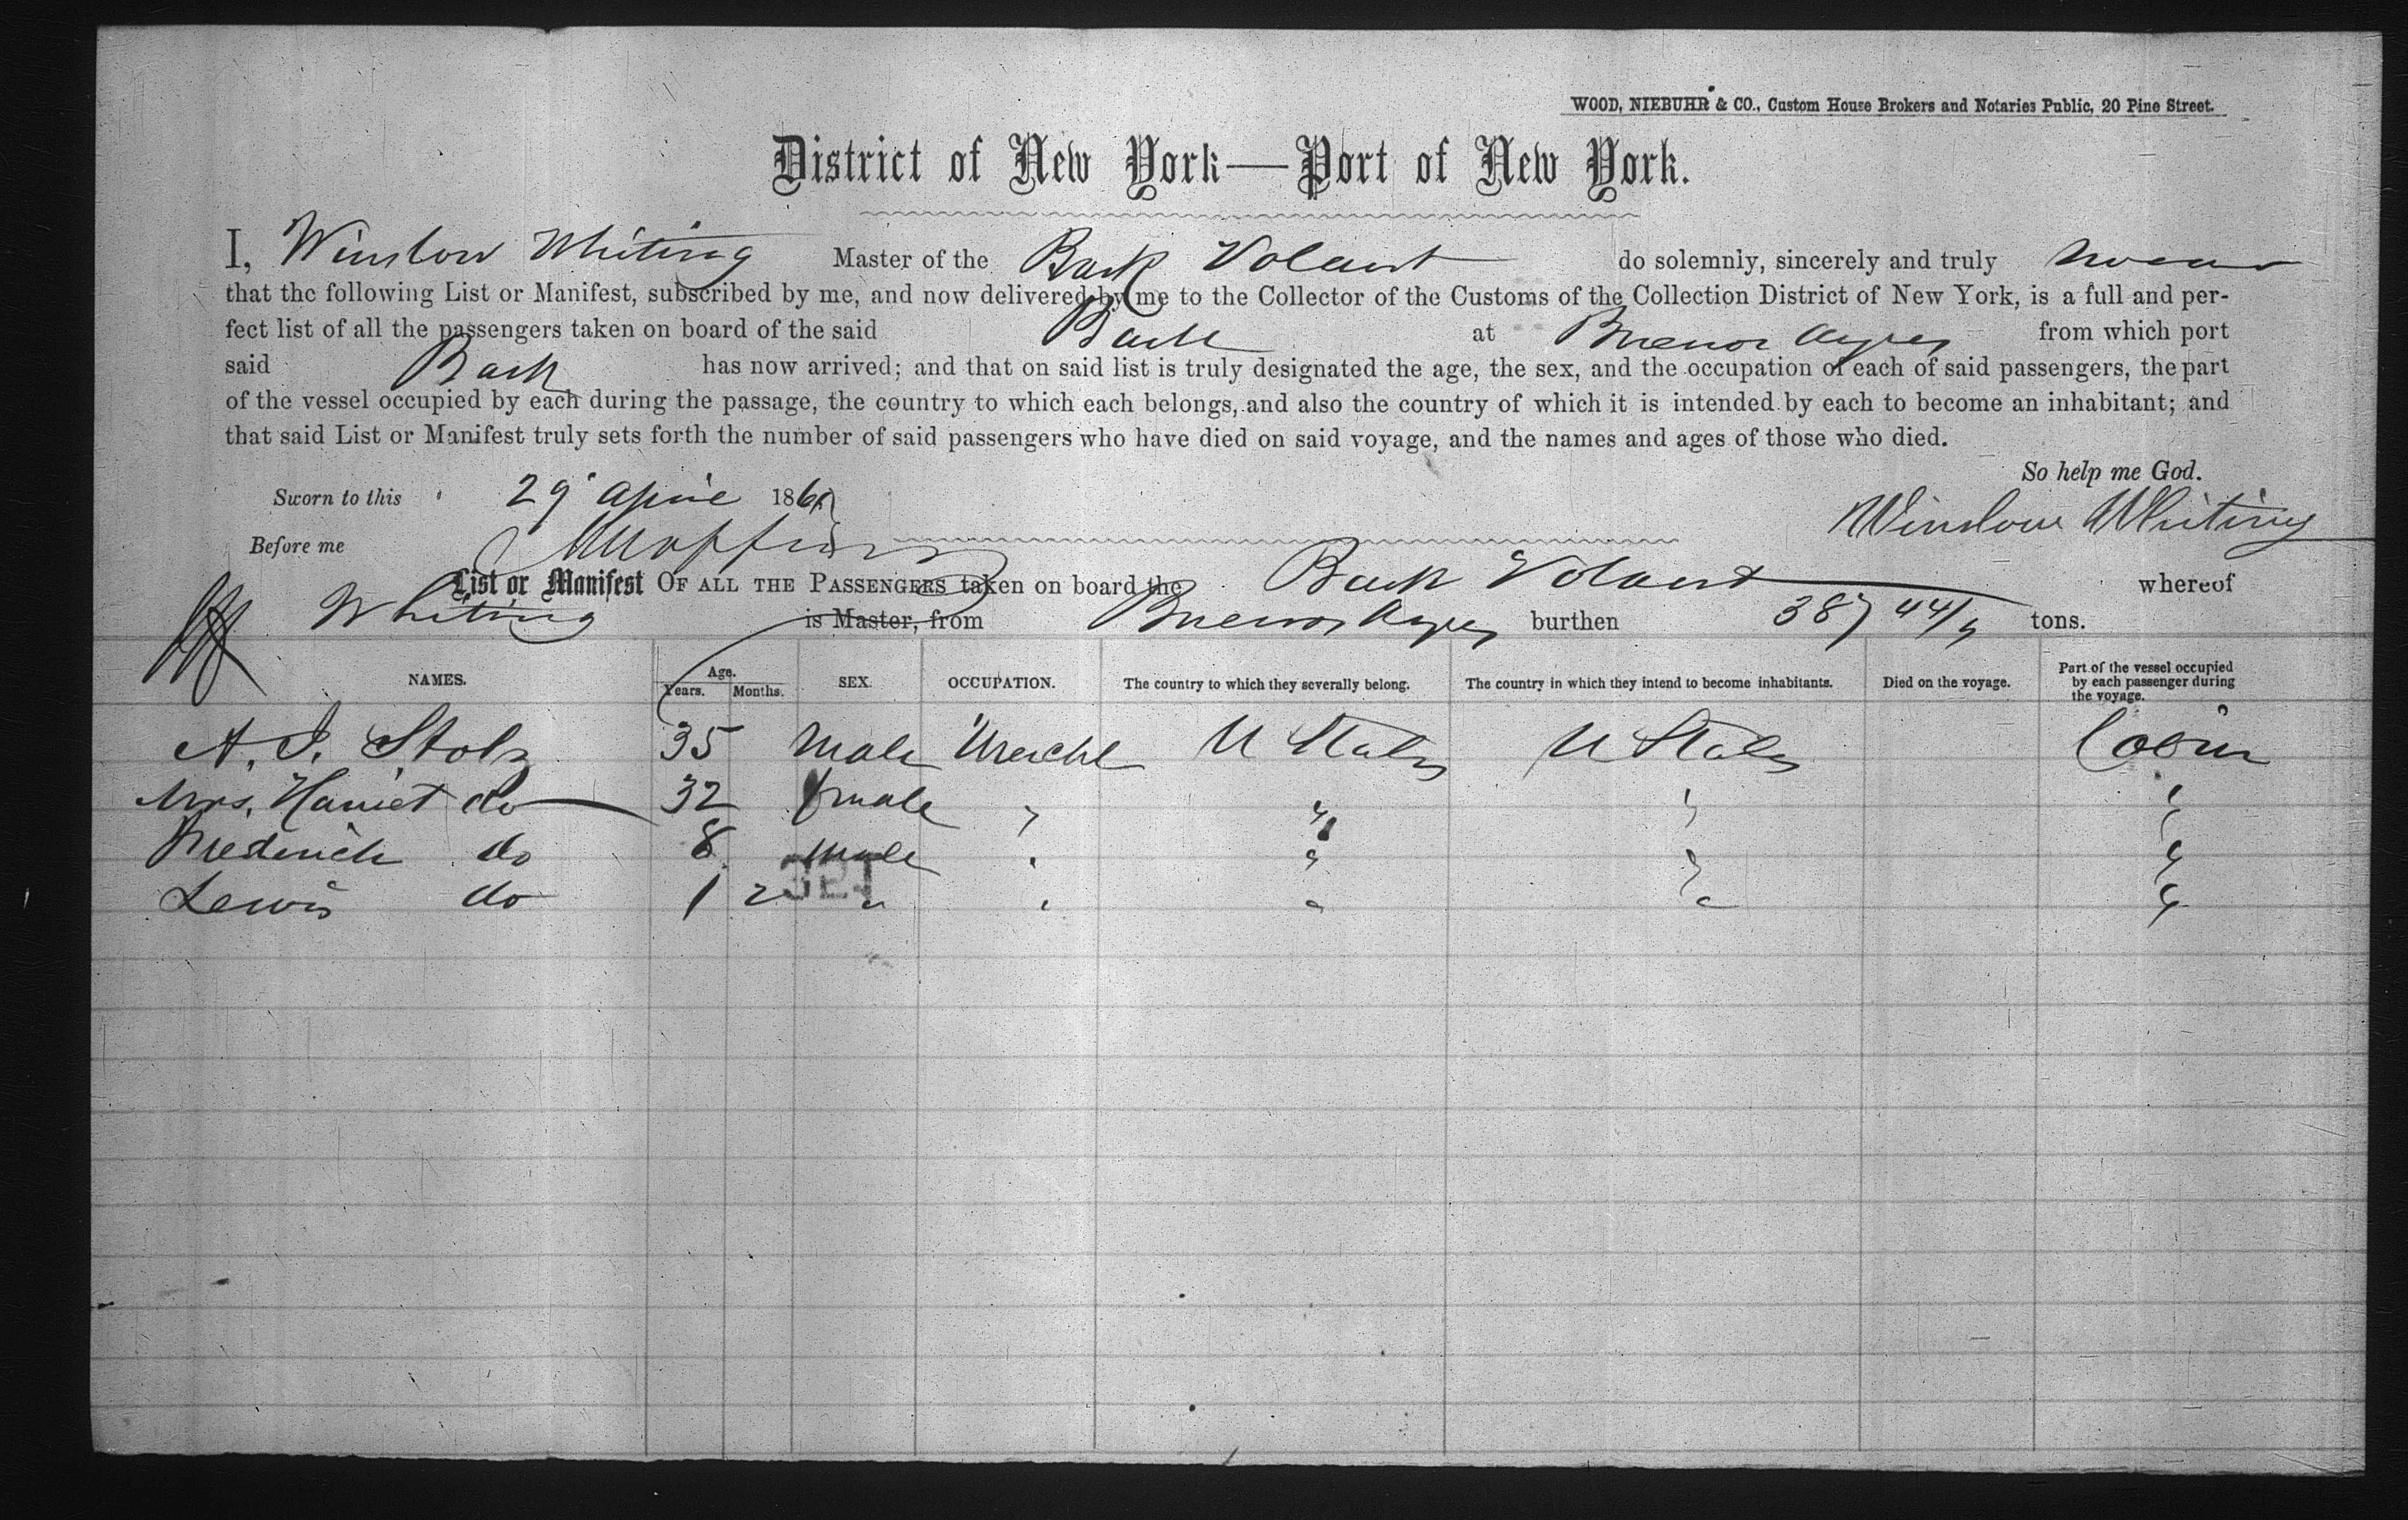 WOOD, NIEBUHR & CO., Custom House Brokers and Notaries Public, 20 Pine Street.
District of New York—Port of New York.
I, Winslow Whiting Master of the Bark Volant do solemnly, sincerely and truly swear
that the following List or Manifest, subscribed by me, and now delivered by me to the Collector of the Customs of the Collection District of New York, is a full and per-
fect list of all the passengers taken on board of the said Bark at Buenos Ayres from which port
said Bark has now arrived; and that on said list is truly designated the age, the sex, and the occupation of each of said passengers, the part
of the vessel occupied by each during the passage, the country to which each belongs, and also the country of which it is intended by each to become an inhabitant; and
that said List or Manifest truly sets forth the number of said passengers who have died on said voyage, and the names and ages of those who died.
So help me God.
Sworn to this 29 April 186
Winslow Whiting
Before me
List or Manifest OF ALL THE PASSENGERS taken on board the Bark Volant whereof
Whiting is Master, from Buenos Ayres burthen 387 44/ tons.
NAMES. Age. Years. Months. SEX. OCCUPATION. The country to which they severally belong. The country in which they intend to become inhabitants. Died on the voyage. Part of the vessel occupied by each passenger during the voyage.
A. J. Stolz 35 Male Mercht U States U States Cabin
Mrs. Harriet do 32 female " " " "
Frederick do 8 male " " " "
Lewis do 1 2 " " " " "
321